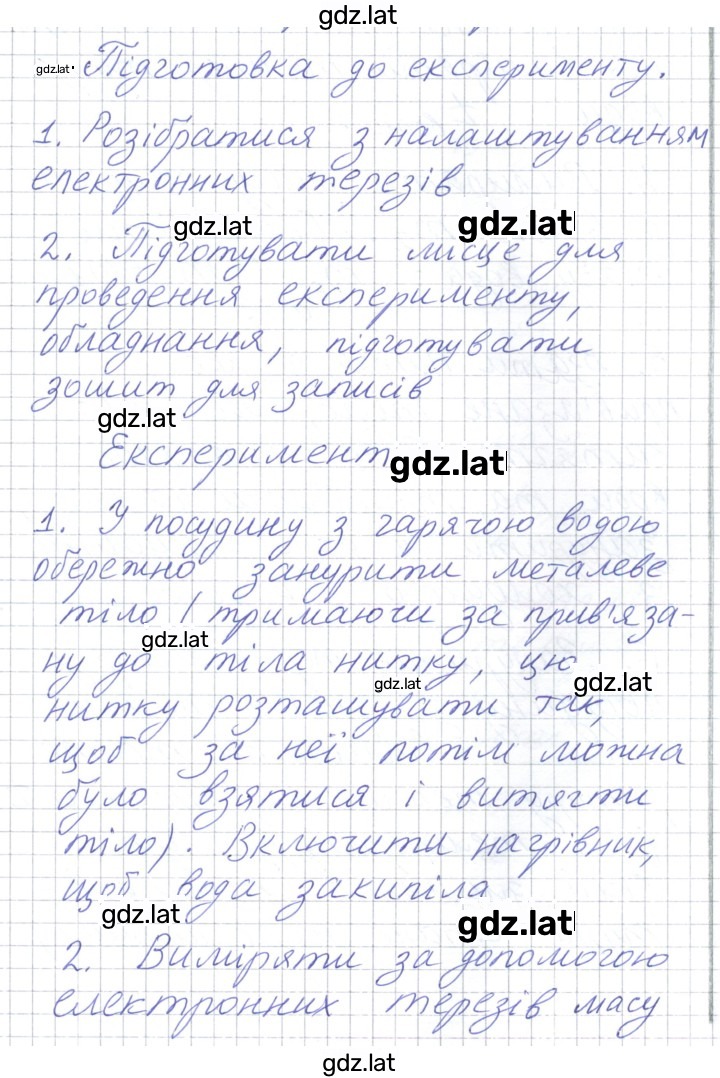 gdz.lat
gdz.lat
Підготовка до експерименту.
1. Розібратися з налаштуванням
електронних терезів
gdz.lat
gdz.lat
2. Підготувати місце для
проведення експерименту,
обладнання, підготувати
зошит для записів
gdz.lat
Експеримент
gdz.lat
1. У посудину з гарячою водою
обережно занурити металеве
тіло (тримаючи за прив'яза-
gdz.lat
ну до тіла нитку, цю
gdz.lat
gdz.lat
нитку розташувати так,
щоб за неї потім можна
було взятися і витягти
тіло). Включити нагрівник,
щоб вода закипіла
gdz.lat
gdz.lat
2. Виміряти за допомогою
електронних терезів масу
gdz.lat